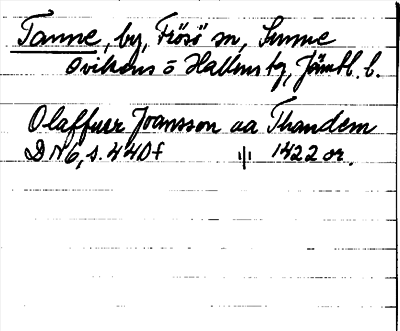 Tanne, by, Frösö sn, Sunne
Ovikens o Hallens tg, Jämtl. l.
Olaffuer Joansson aa Thandem
DN6, s. 440f 1422 or.